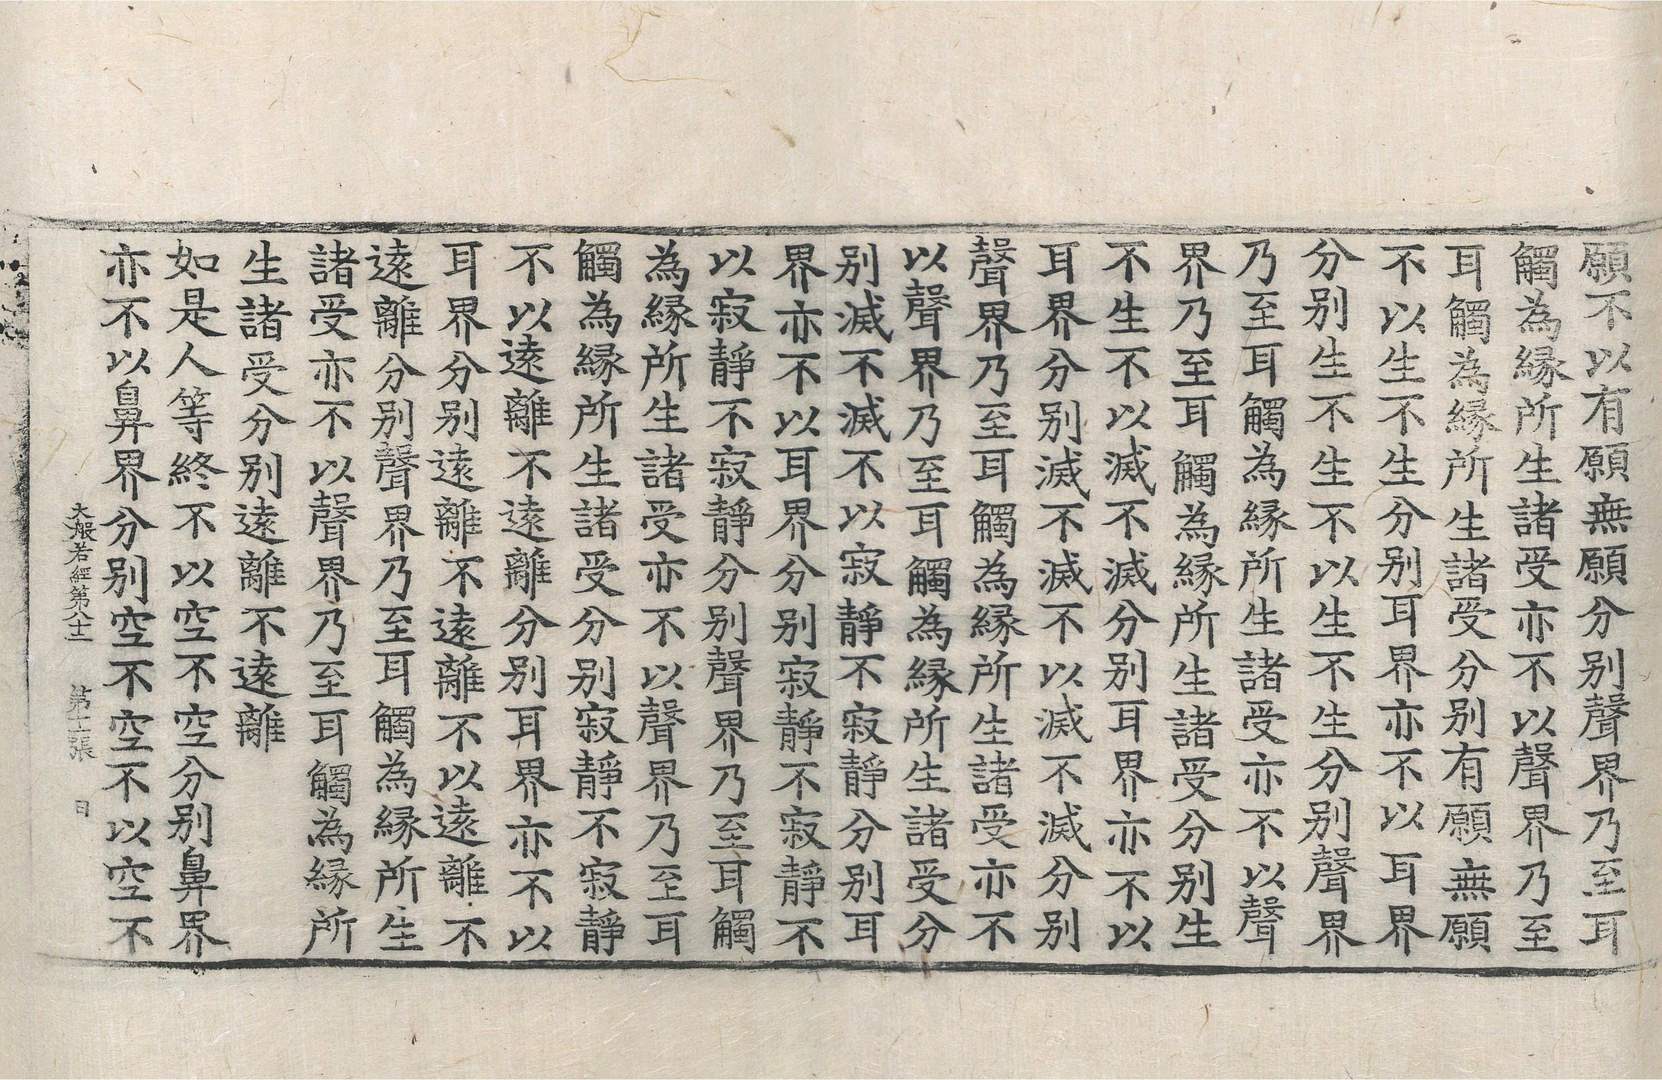 願不以有願無願分别聲界乃至耳
觸為縁所生諸受亦不以聲界乃至
耳觸為縁所生諸受分别有願無願
不以生不生分别耳界亦不以耳界
分别生不生不以生不生分别聲界
乃至耳觸為縁所生諸受亦不以聲
界乃至耳觸為縁所生諸受分别生
不生不以滅不滅分别耳界亦不以
耳界分别滅不滅不以滅不滅分别
聲界乃至耳觸為縁所生諸受亦不
以聲界乃至耳觸為縁所生諸受分
别滅不滅不以寂靜不寂靜分别耳
界亦不以耳界分别寂靜不寂靜不
以寂靜不寂靜分别聲界乃至耳觸
為縁所生諸受亦不以聲界乃至耳
觸為縁所生諸受分别寂靜不寂靜
不以遠離不遠離分别耳界亦不以
耳界分别遠離不遠離不以遠離不
遠離分别聲界乃至耳觸為縁所生
諸受亦不以聲界乃至耳觸為縁所
生諸受分别遠離不遠離
如是人等終不以空不空分别鼻界
亦不以鼻界分别空不空不以空不
大般若經第八十二 第十二張 日